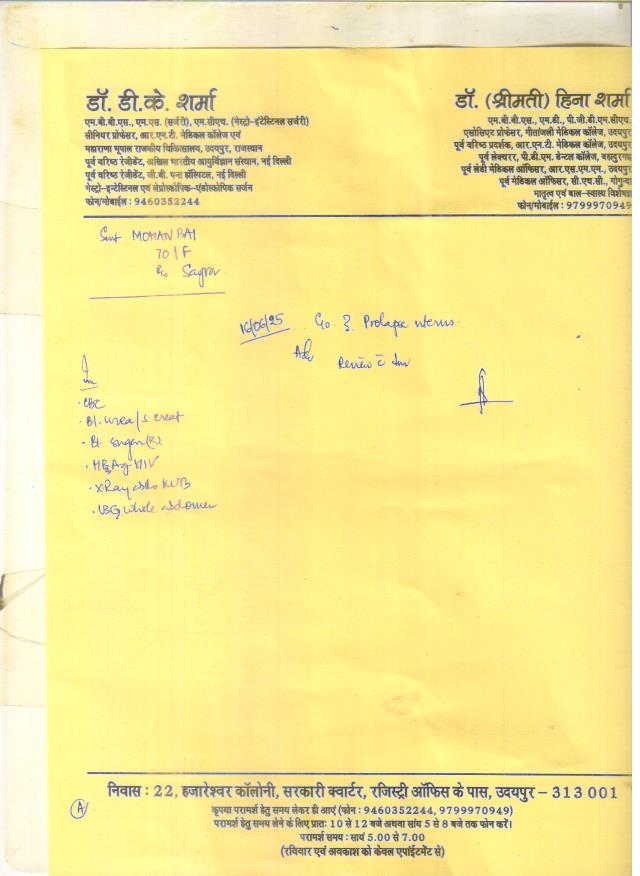 डॉ. डी.के. शर्मा
एम.बी.बी.एस., एम.एस. (सर्जरी), एम.सीएच. (गेस्ट्रो-इंटेस्टिनल सर्जरी)
सीनियर प्रोफेसर, आर.एन.टी. मेडिकल कॉलेज एवं
महाराणा भूपाल राजकीय चिकित्सालय, उदयपुर, राजस्थान
पूर्व वरिष्ठ रेजीडेंट, अखिल भारतीय आयुर्विज्ञान संस्थान, नई दिल्ली
पूर्व वरिष्ठ रेजीडेंट, जी.बी. पन्त हॉस्पिटल, नई दिल्ली
गेस्ट्रो-इन्टेस्टिनल एवं लेप्रोस्कोपिक-एंडोस्कोपिक सर्जन
फोन/मोबाईल : 9460352244
डॉ. (श्रीमती) हिना शर्मा
एम.बी.बी.एस., एम.डी., पी.जी.डी.एम.सीएच.
एसोसिएट प्रोफेसर, गीतांजली मेडिकल कॉलेज, उदयपुर
पूर्व वरिष्ठ प्रदर्शक, आर.एन.टी. मेडिकल कॉलेज, उदयपुर
पूर्व लेक्चरर, पी.डी.एम. डेन्टल कॉलेज, बहादुरगढ़
पूर्व लेडी मेडिकल ऑफिसर, आर.एस.एम.एम., उदयपुर
पूर्व मेडिकल ऑफिसर, सी.एच.सी., गोगुन्दा
मातृत्व एवं बाल-स्वास्थ्य विशेषज्ञ
फोन/मोबाईल : 9799970949
Smt MOHAN BAI
70/F
R/o
16/06/25 Prolapse uterus.
Adv
Review c Inv
Inv
• CBC
• Bl. urea/S. creat
• Bl sugar (R)
• HBsAg HIV
• XRay abdo KUB
• USG whole abdomen
निवास : 22, हजारेश्वर कॉलोनी, सरकारी क्वार्टर, रजिस्ट्री ऑफिस के पास, उदयपुर – 313 001
कृपया परामर्श हेतु समय लेकर ही आएं (फोन : 9460352244, 9799970949)
परामर्श हेतु समय लेने के लिए प्रातः 10 से 12 बजे अथवा सांय 5 से 8 बजे तक फोन करें।
परामर्श समय : सायं 5.00 से 7.00
(रविवार एवं अवकाश को केवल एपॉईंटमेंट से)
A